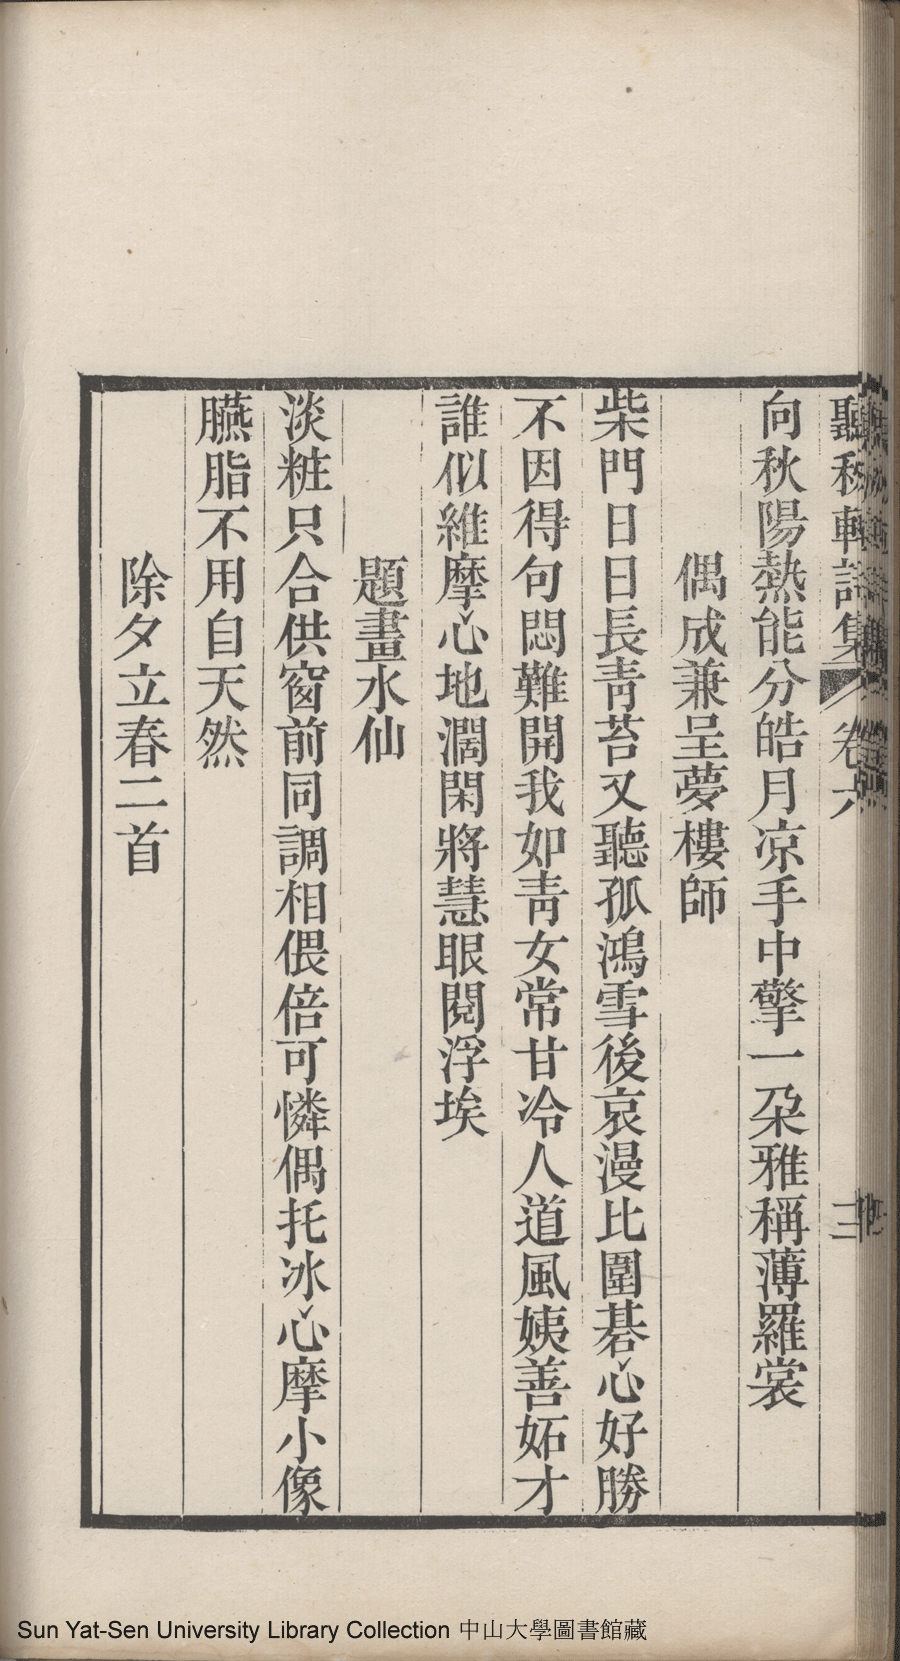 聽秋軒詩集 卷六 三
向秋陽熱能分皓月凉手中擎一朶雅稱薄羅裳
偶成兼呈夢樓師
柴門日日長靑苔又聽孤鴻雪後哀漫比圍碁心好勝
不因得句悶難開我如靑女常甘冷人道風姨善妬才
誰似維摩心地濶閑將慧眼閱浮埃
題畫水仙
淡粧只合供窗前同調相偎倍可憐偶托冰心摩小像
臙脂不用自天然
除夕立春二首
Sun Yat-Sen University Library Collection 中山大學圖書館藏